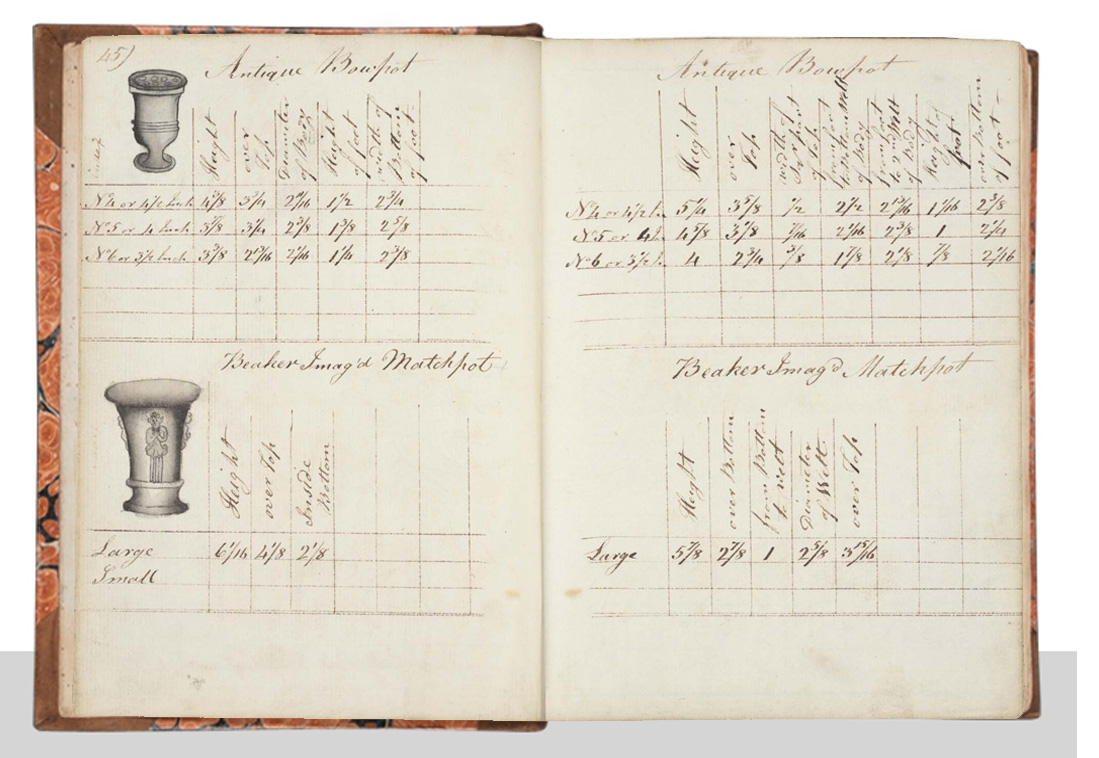 45)
Antique Bowpot
Height over Top Diameter of Body Height of foot width of Bottom of foot
No 4 or 4 1/2 Inch 4 3/8 3 3/4 2 9/16 1 1/2 2 3/4
No 5 or 4 Inch 3 7/8 3 1/4 2 3/8 1 3/8 2 5/8
No 6 or 3 1/2 Inch 3 3/8 2 13/16 2 1/16 1 1/4 2 3/8
Beaker Imag'd Matchpot
Height over Top Inside Bottom
Large 6 1/16 4 1/8 2 1/8
Small
Antique Bowpot
Height over Top width of of top from foot of Body from foot to 2nd Welt of Body Height of foot over Bottom of foot
No 4 or 4 1/2 In. 5 1/4 3 5/8 1/2 2 1/2 2 13/16 1 1/16 2 3/8
No 5 or 4 In. 4 5/8 3 1/8 7/16 2 1/16 2 3/8 1 2 1/4
No 6 or 3 1/2 In. 4 2 3/4 3/8 1 7/8 2 1/8 7/8 2 1/16
Beaker Imag'd Matchpot
Height over Bottom from Bottom to welt Diameter of Welt over Top
Large 5 7/8 2 7/8 1 2 5/8 3 15/16